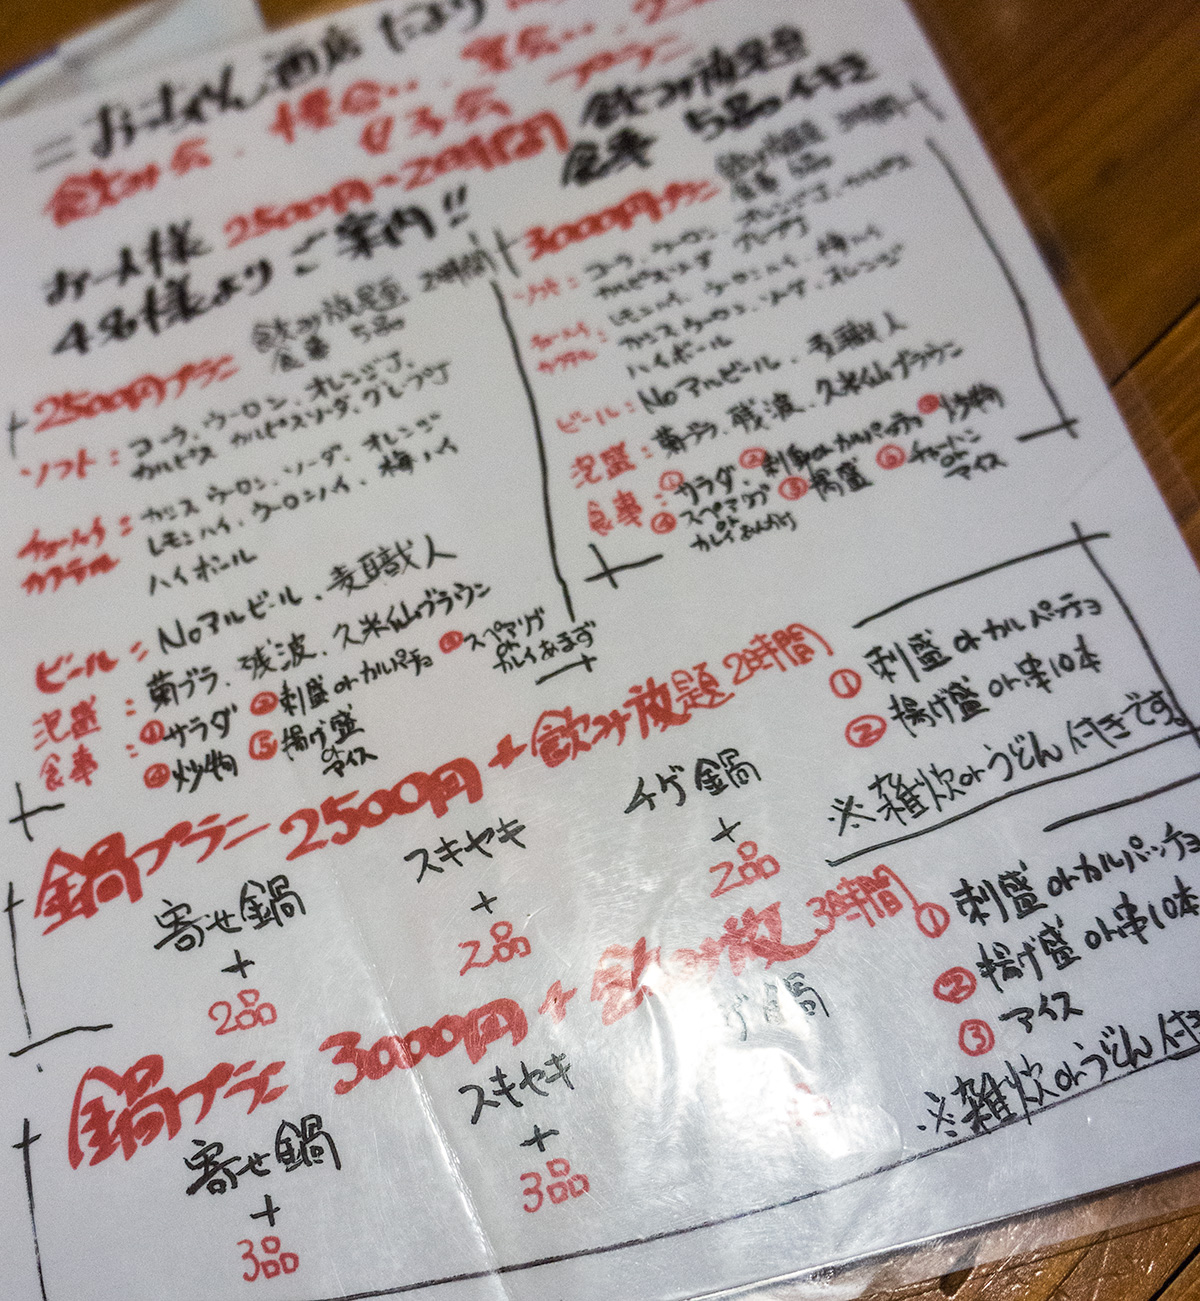 = おーちゃん酒店 だより
飲み会・模合‥宴会‥
女子会 プラン
お一人様 2500円～2時間 飲み放題
4名様より ご案内!! 食事 5品付き
2500円プラン 飲み放題 2時間
食事 5品
ソフト：コーラ、ウーロン、オレンジ、
カルピス カルピスソーダ、グレープ
チューハイ：カシス ウーロン、ソーダ、オレンジ
カクテル レモンハイ、ウーロンハイ、梅ハイ
ハイボール
ビール：Noアルビール、麦職人
泡盛：菊ブラ、残波、久米仙ブラウン
食事：①サラダ ②刺盛orカルパッチョ ③スペアリブ
or
カレイあまず
④炒物 ⑤揚げ盛
or
アイス
3000円プラン 飲み放題 3時間
食事 5品
ソフト：コーラ、ウーロン、オレンジ、カルピス
カルピスソーダ グレープ
チューハイ：レモンハイ、ウーロンハイ、梅ハイ
カクテル カシス ウーロン、ソーダ、オレンジ
ハイボール
ビール：Noアルビール、麦職人
泡盛：菊ブラ、残波、久米仙ブラウン
食事：①サラダ、②刺身orカルパッチョ ③炒物
④スペアリブ ⑤揚盛 ⑥
or
カレイあんかけ
or
アイス
鍋プラン 2500円+飲み放題 2時間
寄せ鍋
+
2品
スキヤキ
+
2品
チゲ鍋
+
2品
①刺盛orカルパッチョ
②揚げ盛or串10本
※雑炊orうどん付きです。
鍋プラン 3000円+飲み放 3時間
寄せ鍋
+
3品
スキヤキ
+
3品
ゲ鍋
①刺盛orカルパッチョ
②揚げ盛or串10本
③アイス
※雑炊orうどん付き